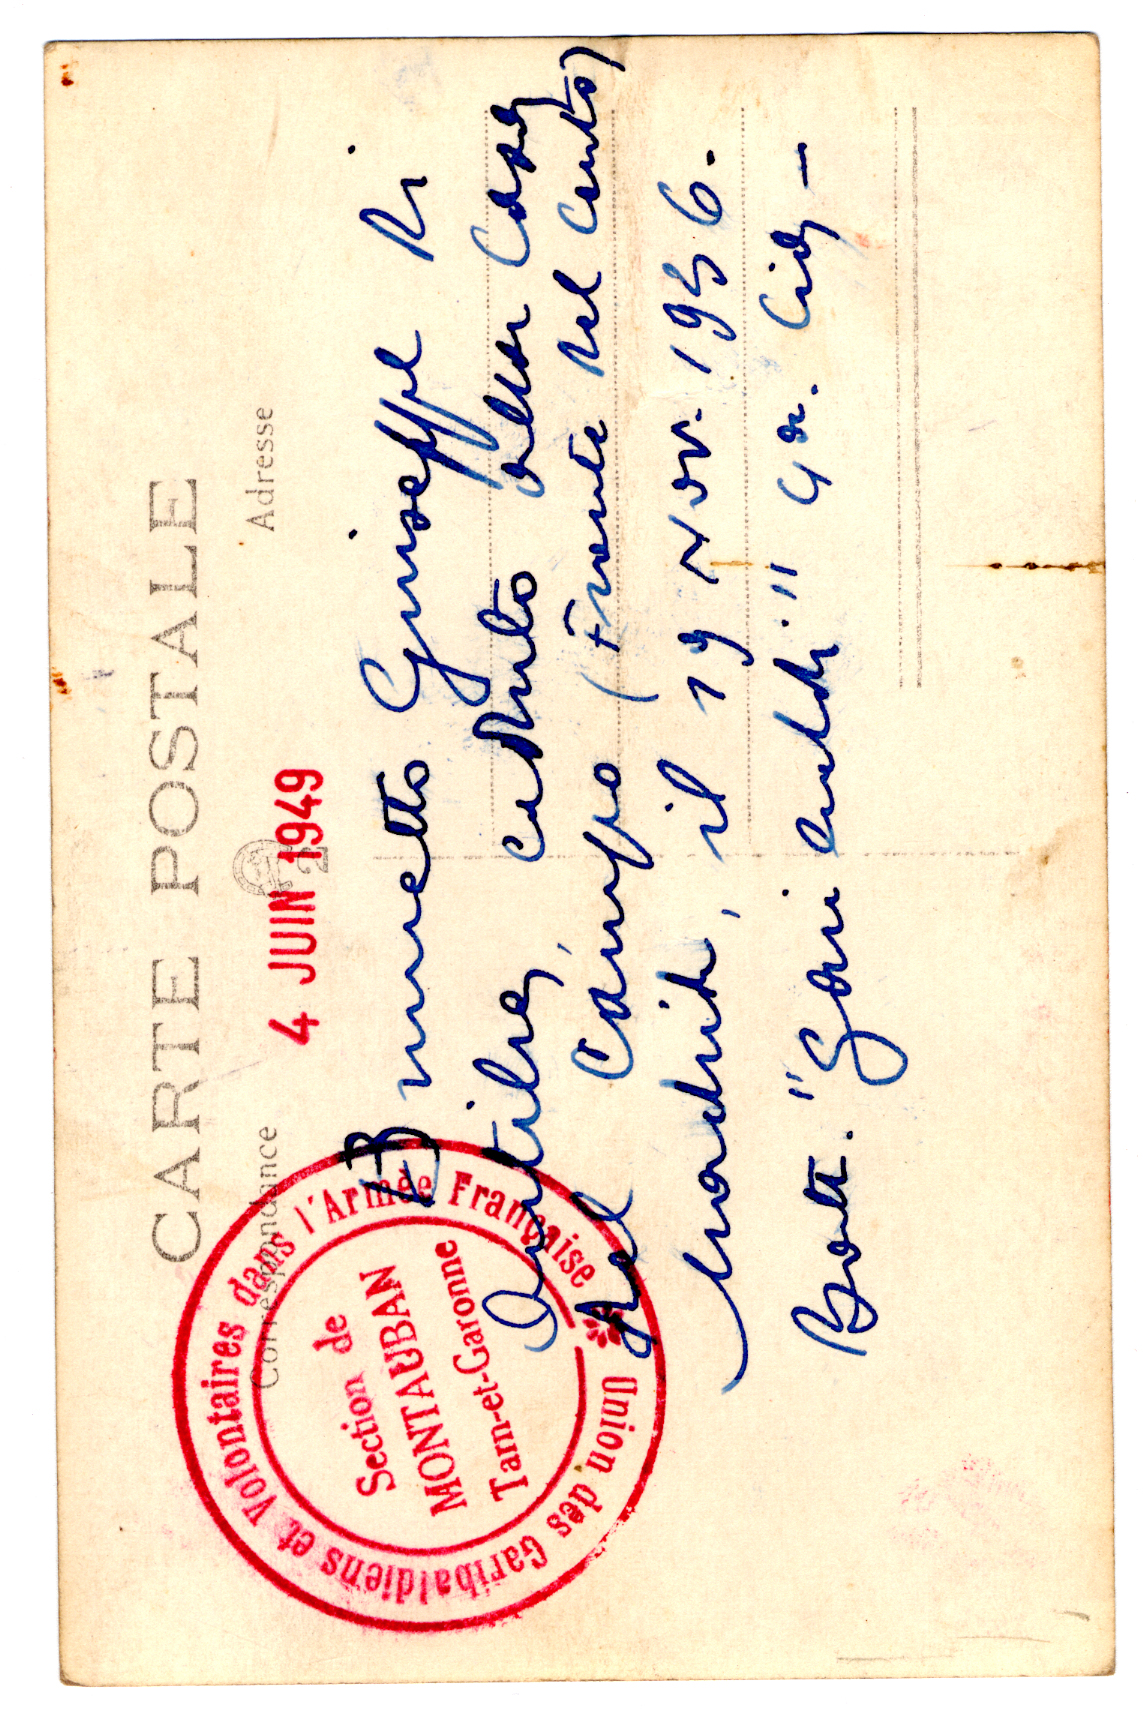 CARTE POSTALE
Correspondance
Adresse
4 JUIN 1949
Union des Garibaldiens et Volontaires dans l'Armée Française
Section de
MONTAUBAN
Tarn-et-Garonne
Giuseppe di
caduto alla Casa
del Campo (Fronte del Centro)
Madrid, il 19 Nov. 1936.
Batt. "Garibaldi" 4a. Cia —